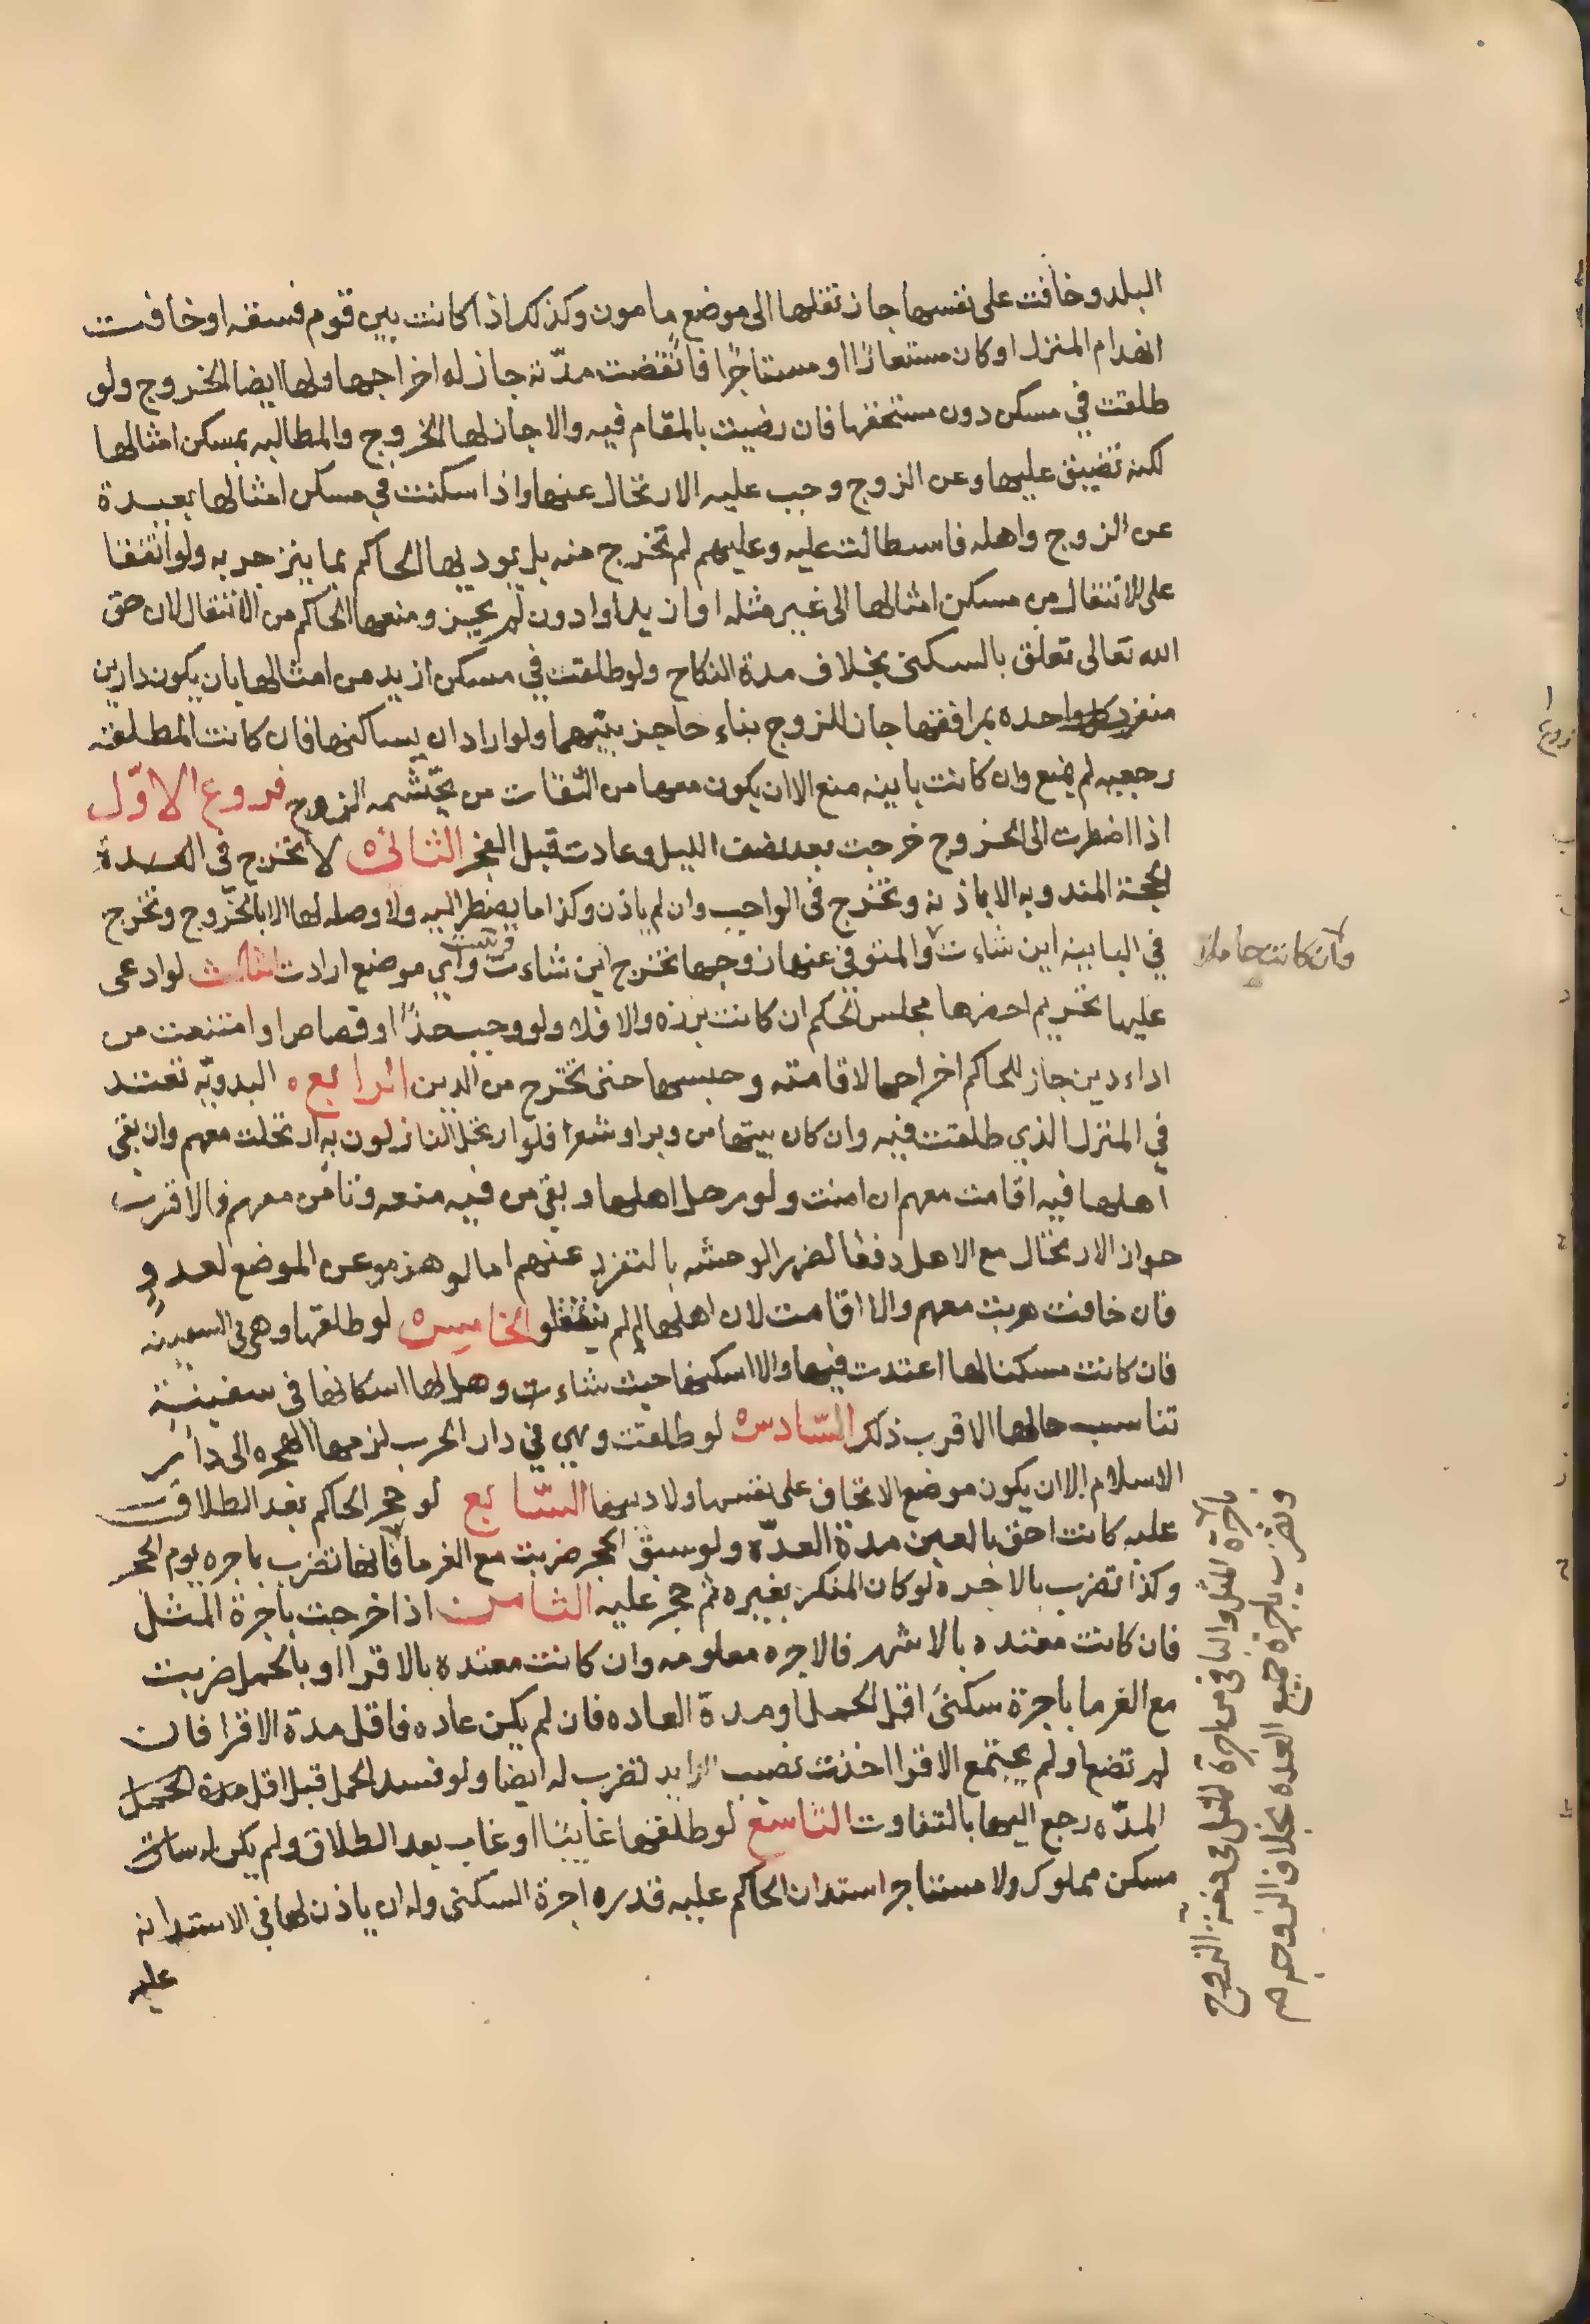 البلد وخافت على نفسها جاز نقلها الى موضع مامون وكذلك اذا كانت بين قوم فسقه او خافت
انهدام المنزل او كان مستعارًا او مستاجرًا فانقضت مدّته جاز له اخراجها ولها ايضا الخروج ولو
طلقت في مسكن دون مستحقها فان رضيت بالمقام فيه والا جاز لها الخروج والمطالبه بمسكن امثالها
لكنه تضييق عليها وعن الزوج وجب عليه الارتحال عنها واذا سكنت في مسكن امثالها بعيدة
عن الزوج واهله فاسطالت عليه وعليهم لم تخرج منه بل يوديها الحاكم بما ينزجر به ولو اتفقا
على الانتقال من مسكن امثالها الى غير مثله او ازيد او ادون لم يجز ومنعها الحاكم من الانتقال لان حق
الله تعالى تعلق بالسكنى بخلاف مدة النكاح ولو طلقت في مسكن ازيد من امثالها بان يكون دارين
منفرد كل واحده بمرافقها جاز للزوج بناء حاجز بينهما ولو اراد ان يساكنها فان كانت المطلقه
رجعيه لم يمنع وان كانت باينه منع الا ان يكون معها من الثقات من يحتشمه الزوج فروع الاوّل
اذا اضطرت الى الخروج خرجت بعد نصف الليل وعادت قبل الفجر الثاني ه لا تخرج في العدة
لحجة المندوبه الا باذنه وتخرج في الواجب وان لم ياذن وكذا ما يضطر اليه ولا وصله لها الا بالخروج وتخرج
في الباينه اين شاءت والمتوفى عنها زوجها تخرج اين شاءت وتبيت واي موضع ارادت الثالث لو ادعى
وان كانت حاملا
عليها غريم احضرها مجلس الحكم ان كانت برزه والا فلا ولو وجب حدًّا او قصاص او امتنعت من
اداء دين جاز للحاكم اخراجها لاقامته وحبسها حتى تخرج من الدين الرابع ه البدويّه تعتد
في المنزل الذي طلقت فيه وان كان بيتها من وبر او شعر فلو ارتحل النازلون به ارتحلت معهم وان بقي
اهلها فيه اقامت معهم ان امنت ولو رحل اهلها وبقي من فيه منعه وتامن معهم فالاقرب
جواز الارتحال مع الاهل دفعا لضرر الوحشه بالتفرد عنهم اما لو هربوا عن الموضع لعدوٍّ
فان خافت هربت معهم والا اقامت لان اهلها لم ينتقلوا الخامس ه لو طلقها وهي في السفينه
فان كانت مسكنا لها اعتدت فيها والا اسكنها حيث شاءت وهل لها اسكانها في سفينة
تناسب حالها الاقرب ذلك السّادس ه لو طلقت وهي في دار الحرب لزمها الهجره الى دار
الاسلام الا ان يكون موضع لا تخاف على نفسها ولا دينها السّابع لو حجر الحاكم بعد الطلاق
عليه كانت احق بالعين مدة العدّه ولو سبق الحجر ضربت مع الغرما فانها تضرب باجره يوم الحجر
وكذا تضرب بالاجره لو كان المنكر بغيره ثم حجر عليه الثامن اذا خرجت باجرة المثل
فان كانت معتده بالاشهر فالاجره معلومه وان كانت معتده بالاقرا او بالحمل ضربت
مع الغرما باجرة سكنى اقل الحمل او مدة العاده فان لم يكن عاده فاقل مدة الاقرا فان
لم تضع او لم يجتمع الاقرا اخذت نصيب الزايد تضرب له ايضا ولو فسد الحمل قبل اقل مدة الحمل
المدّه رجع اليها بالتفاوت التاسع لو طلقها غايبًا او غاب بعد الطلاق ولم يكن له
مسكن مملوك ولا مستاجر استدان الحاكم عليه قدره اجرة السكنى وله ان ياذن لها في الاستدانه
عليه
باجرة المثل والباقي من اجرة المثل في ذمة الزوج
وتضرب باجرة جميع العده بخلاف الزوجه
فروع